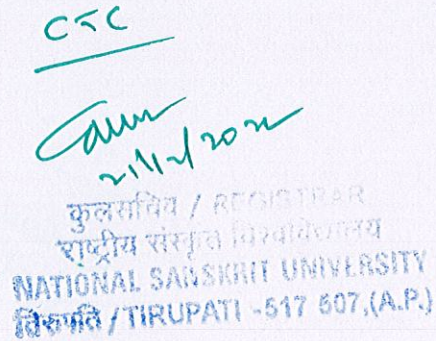 CTC
21/12/2022
कुलसचिव / REGISTRAR
राष्ट्रीय संस्कृत विश्वविद्यालय
NATIONAL SANSKRIT UNIVERSITY
तिरुपति / TIRUPATI -517 507,(A.P.)